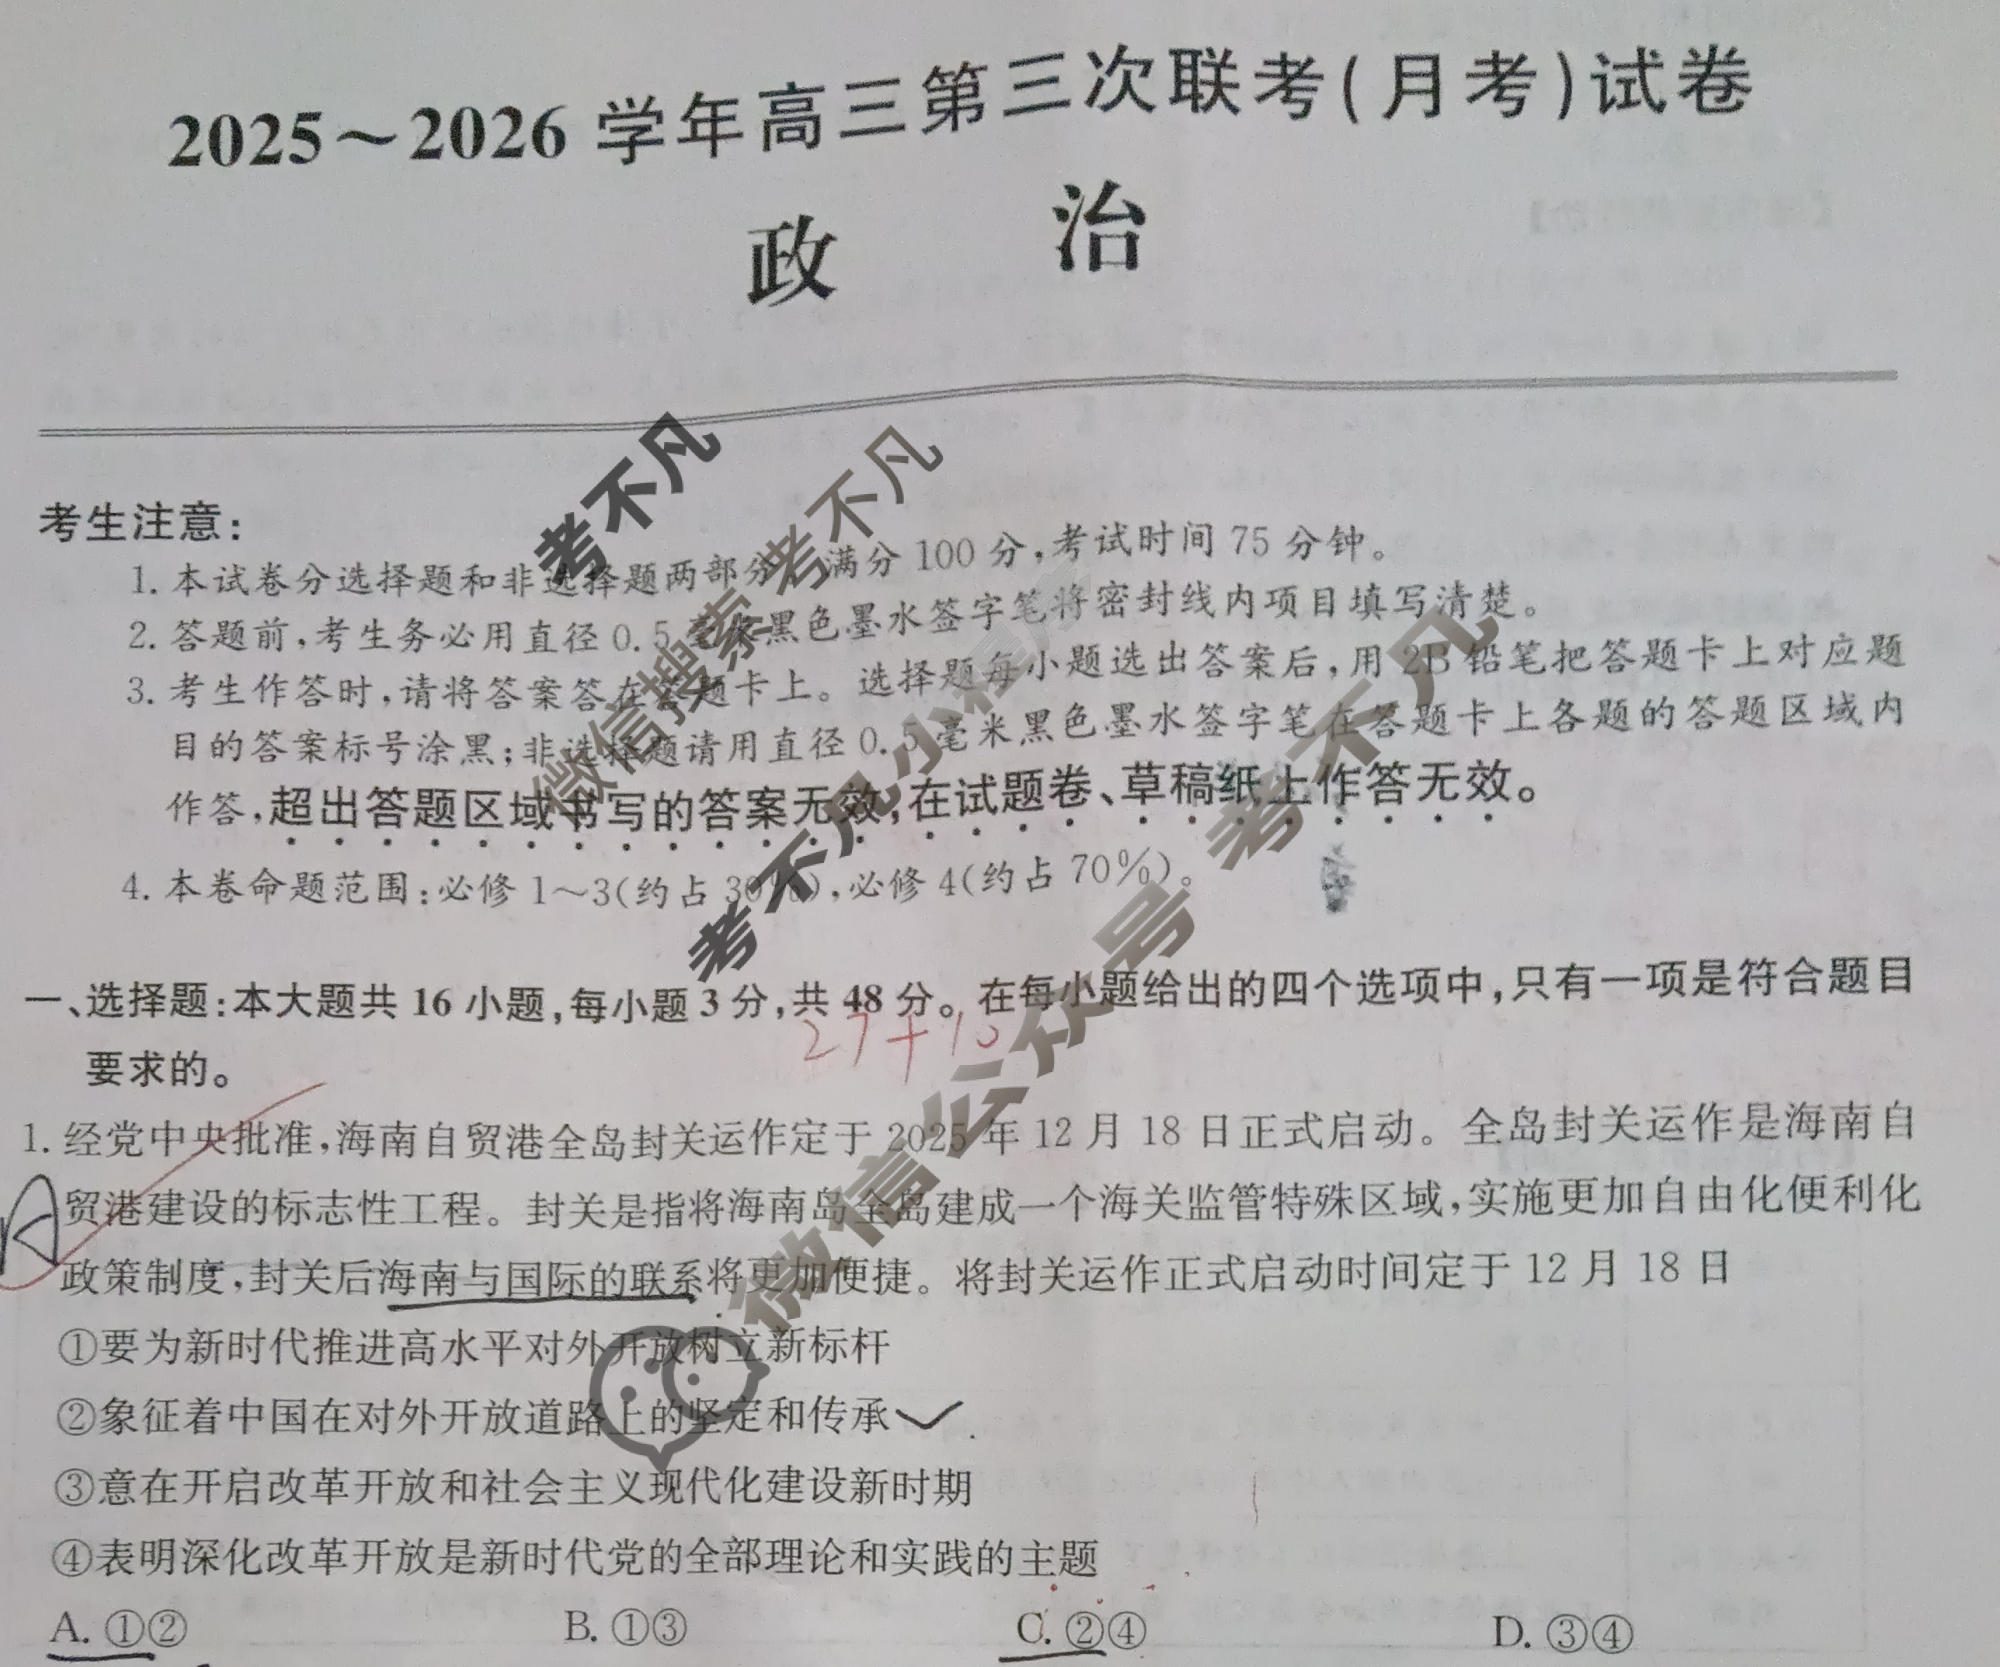 2025～2026学年高三第三次联考(月考)试卷
政 治
考生注意:
1. 本试卷分选择题和非选择题两部分。满分100分,考试时间75分钟。
2. 答题前,考生务必用直径0.5毫米黑色墨水签字笔将密封线内项目填写清楚。
3. 考生作答时,请将答案答在答题卡上。选择题每小题选出答案后,用2B铅笔把答题卡上对应题
目的答案标号涂黑;非选择题请用直径0.5毫米黑色墨水签字笔在答题卡上各题的答题区域内
作答,超出答题区域书写的答案无效,在试题卷、草稿纸上作答无效。
4. 本卷命题范围:必修1～3(约占30%),必修4(约占70%)。
一、选择题:本大题共16小题,每小题3分,共48分。在每小题给出的四个选项中,只有一项是符合题目
要求的。
27+10
1. 经党中央批准,海南自贸港全岛封关运作定于2025年12月18日正式启动。全岛封关运作是海南自
A
贸港建设的标志性工程。封关是指将海南岛全岛建成一个海关监管特殊区域,实施更加自由化便利化
政策制度,封关后海南与国际的联系将更加便捷。将封关运作正式启动时间定于12月18日
①要为新时代推进高水平对外开放树立新标杆
②象征着中国在对外开放道路上的坚定和传承
③意在开启改革开放和社会主义现代化建设新时期
④表明深化改革开放是新时代党的全部理论和实践的主题
A. ①② B. ①③ C. ②④ D. ③④
考不凡
微信搜索 考不凡
考不凡小程序
微信公众号 考不凡